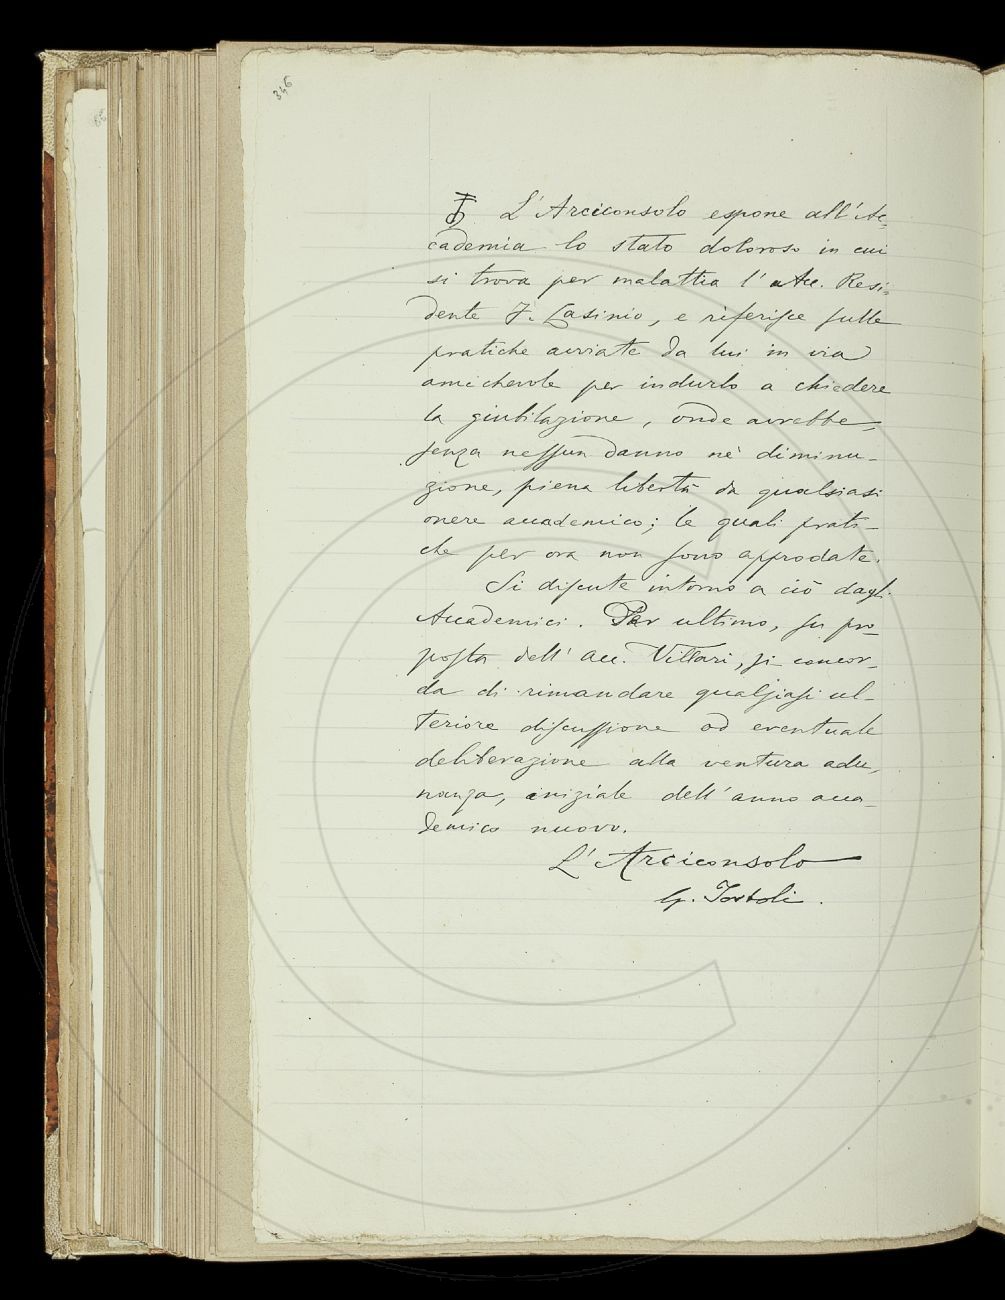 346
L'Arciconsolo espone all'Ac-
cademia lo stato doloroso in cui
si trova per malattia l'Acc. Resi-
dente F. Lasinio, e riferisce sulle
pratiche avviate da lui in via
amichevole per indurlo a chiedere
la giubilazione, onde avrebbe,
senza nessun danno nè diminu-
zione, piena libertà da qualsiasi
onere accademico; le quali prati-
che per ora non sono approdate.
Si discute intorno a ciò dagli
Accademici. Per ultimo, su pro-
posta dell'Acc. Villari, si concor-
da di rimandare qualsiasi ul-
teriore discussione ed eventuale
deliberazione alla ventura adu-
nanza, iniziale dell'anno acca-
demico nuovo.
L'Arciconsolo
G. Tortoli.